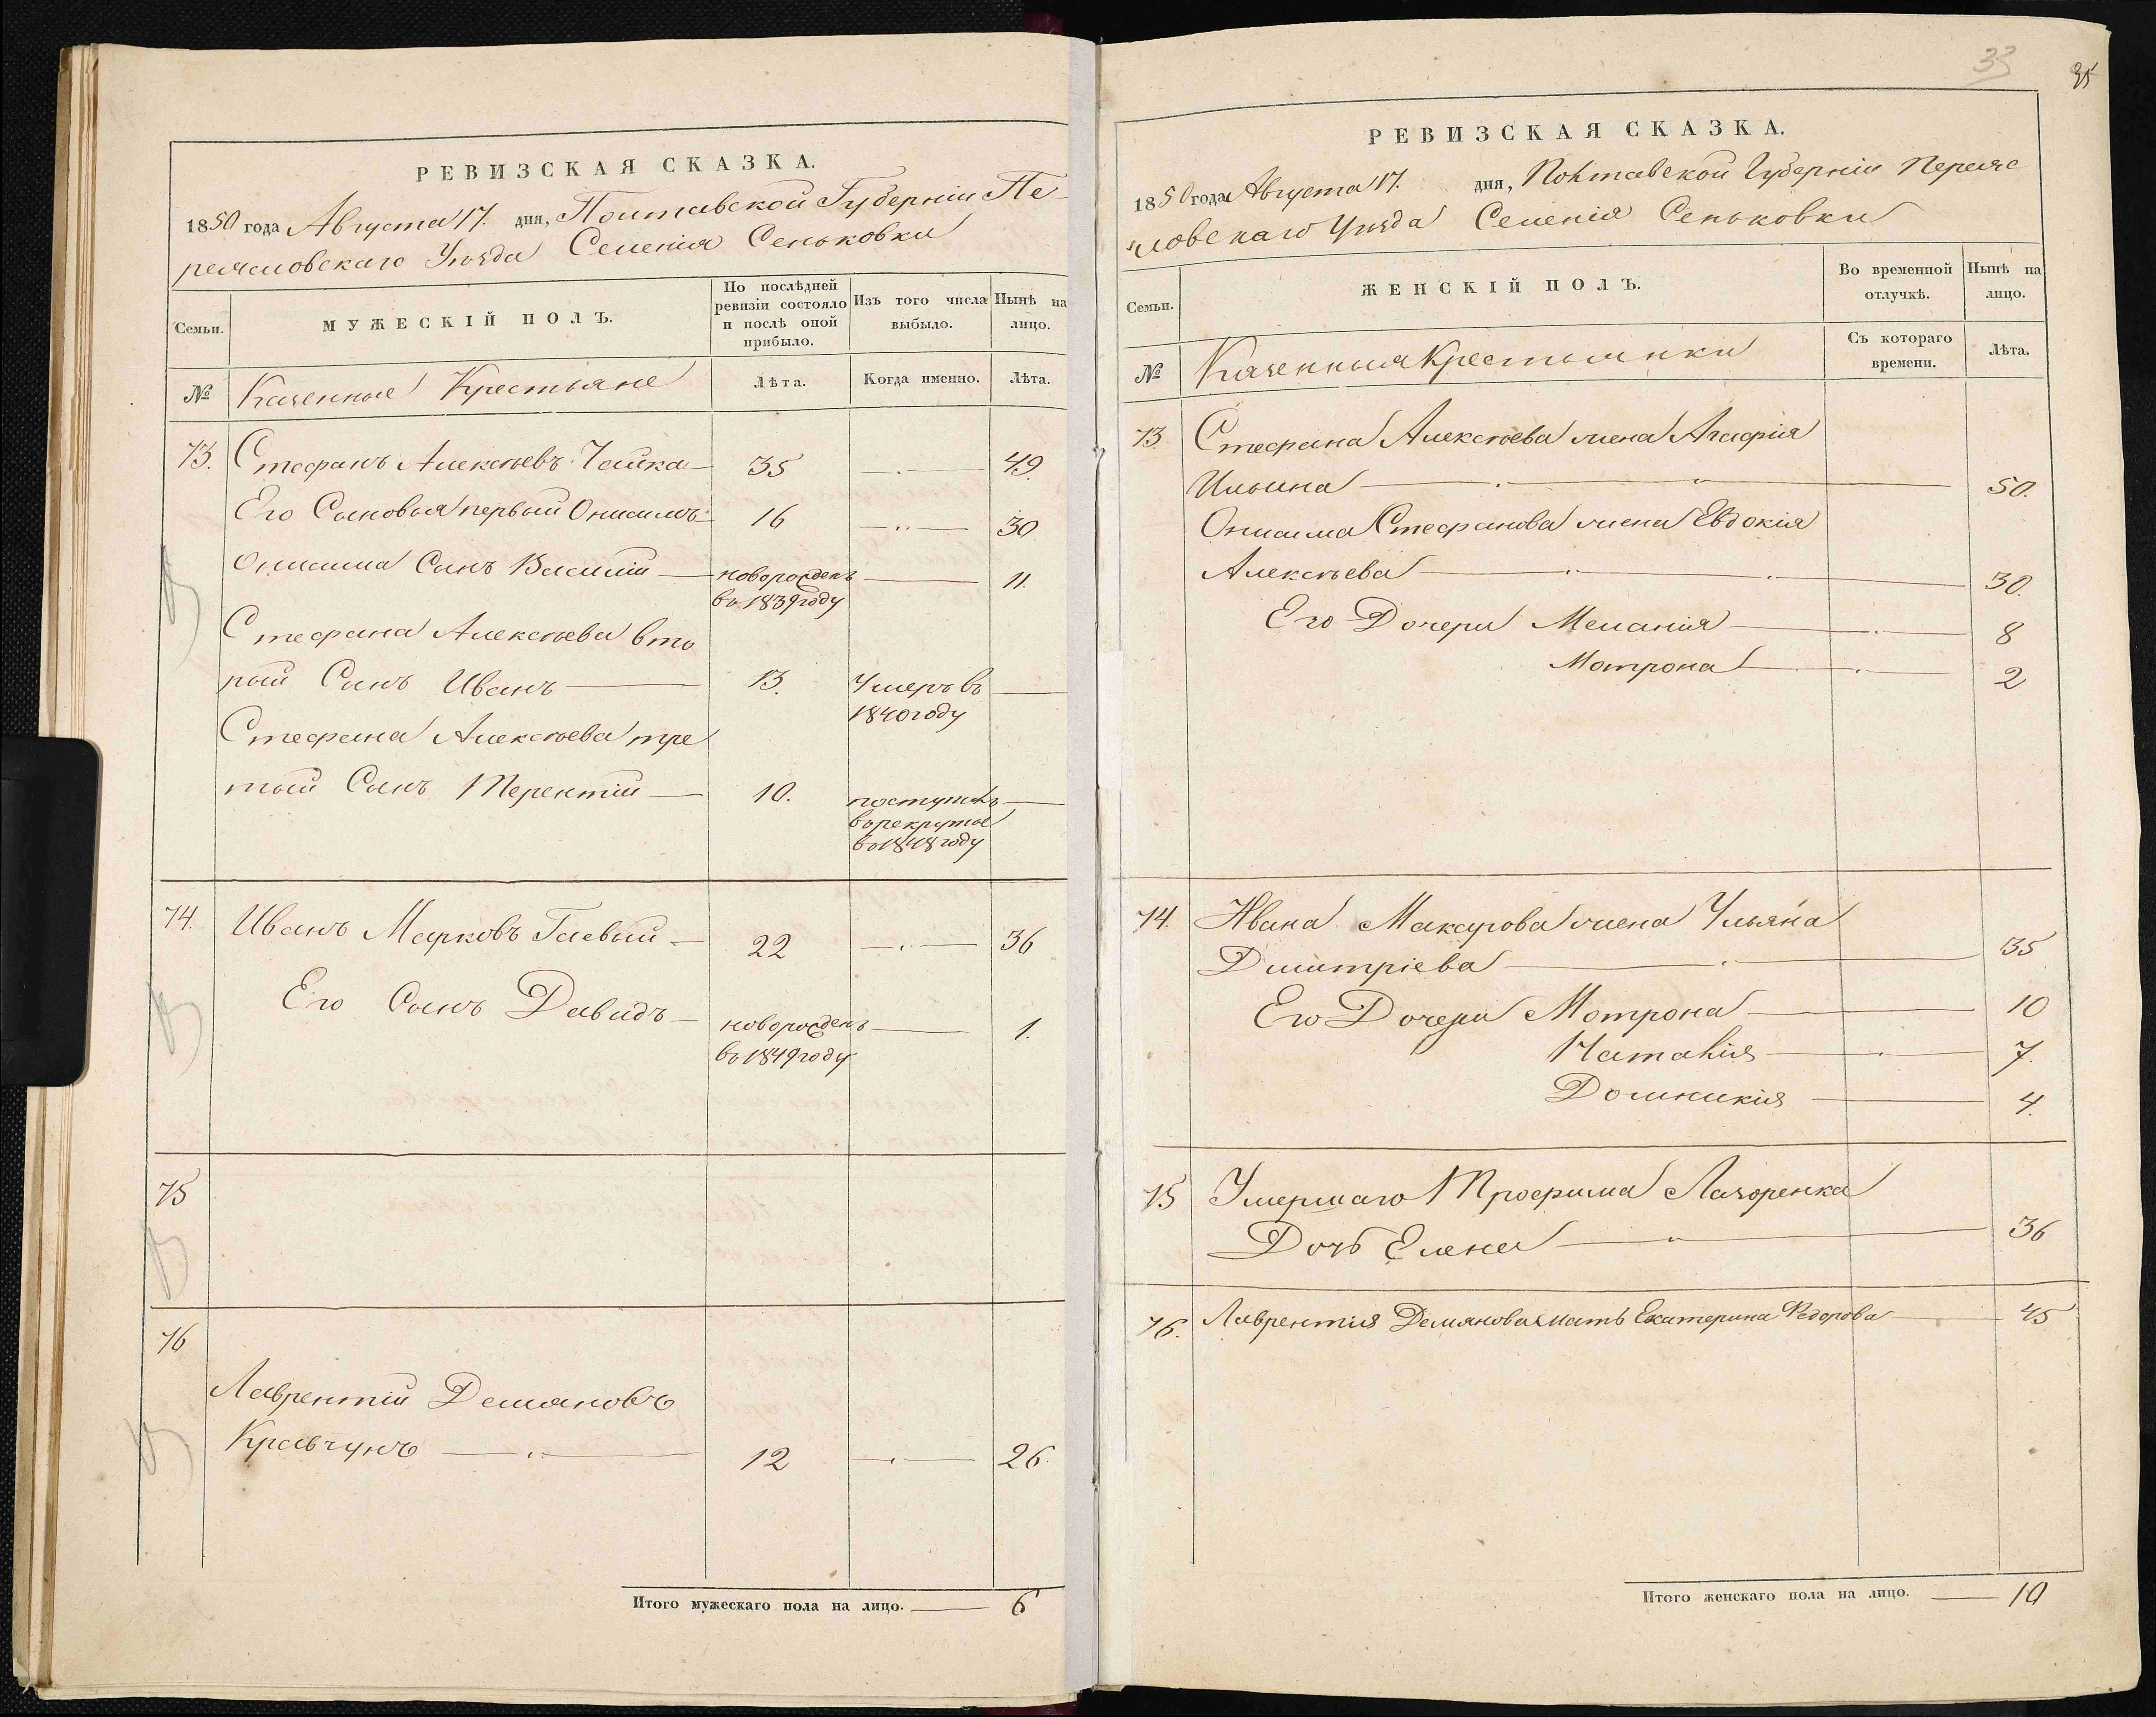 РЕВИЗСКАЯ СКАЗКА.
1850 года Августа 17. дня, Полтавской Губерніи Пе-
реясловскаго Уѣзда Селенія Сеньковки
Семьи.
МУЖЕСКІЙ ПОЛЪ.
По послѣдней ревизіи состояло и послѣ оной прибыло.
Изъ того числа выбыло.
Нынѣ на лицо.
№
Казенные Крестьяне
Лѣта.
Когда именно.
Лѣта.
73. Стефанъ Алексѣевъ Чайка 35 49
Его Сыновья первый Онисимъ 16 30
Онисима Сынъ Василій новорожденъ 11.
въ 1839 году
Стефана Алексѣева вто
рый Сынъ Иванъ 13. Умеръ въ
1840 году
Стефана Алексѣева тре
тый Сынъ Терентій 10. поступилъ
въ рекруты
въ 1848 году
74. Иванъ Марковъ Гаевый 22 36
Его Сынъ Давидъ новорожденъ 1.
въ 1849 году
75
76
Лаврентій Демяновъ
Кравчунъ 12 26
Итого мужескаго пола на лицо. 6
33
35
РЕВИЗСКАЯ СКАЗКА.
1850 года Августа 17. дня, Полтавской Губерніи Переяс
ловскаго Уѣзда Селенія Сеньковки
Семьи.
ЖЕНСКІЙ ПОЛЪ.
Во временной отлучкѣ.
Нынѣ на лицо.
№
Казенныя Крестьянки
Съ котораго времени.
Лѣта.
73. Стефана Алексѣева жена Агафія
Ильина 50.
Онисима Стефанова жена Евдокія
Алексѣева 30.
Его Дочери Меланія 8
Мотрона 2
74. Ивана Макарова жена Ульяна
Дмитріева 35
Его Дочери Мотрона 10
Наталія 7.
Домникія 4.
75 Умершаго Трофима Лазоренка
Дочь Елена 36
76. Лаврентія Демянова мать Екатерина Ѳедорова 45
Итого женскаго пола на лицо. 10